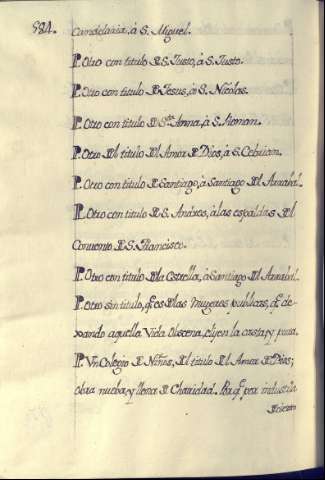 584.
Candelaria, à S. Miguel.
P. Otro con titulo de S. Justo, à S. Justo.
P. Otro con titulo de Jesus, à S. Nicolas.
P. Otro con titulo de Sta. Anna, à S. Roman.
P. Otro del titulo del Amor de Dios, à S. Cebrian.
P. Otro con titulo de Santiago, à Santiago del Arrabal.
P. Otro con titulo de S. Andres, à las espaldas del
Convento de S. Francisco.
P. Otro con titulo de la Estrella, à Santiago del Arrabal.
P. Otro sin titulo, q. es de las Mugeres publicas, q. de-
xando aquella Vida Obscena, elijen la casta, y pura.
P. Vn Colegio de Niños, del titulo del Amor de Dios;
obra nueba, y llena de Charidad. Por q. por industria